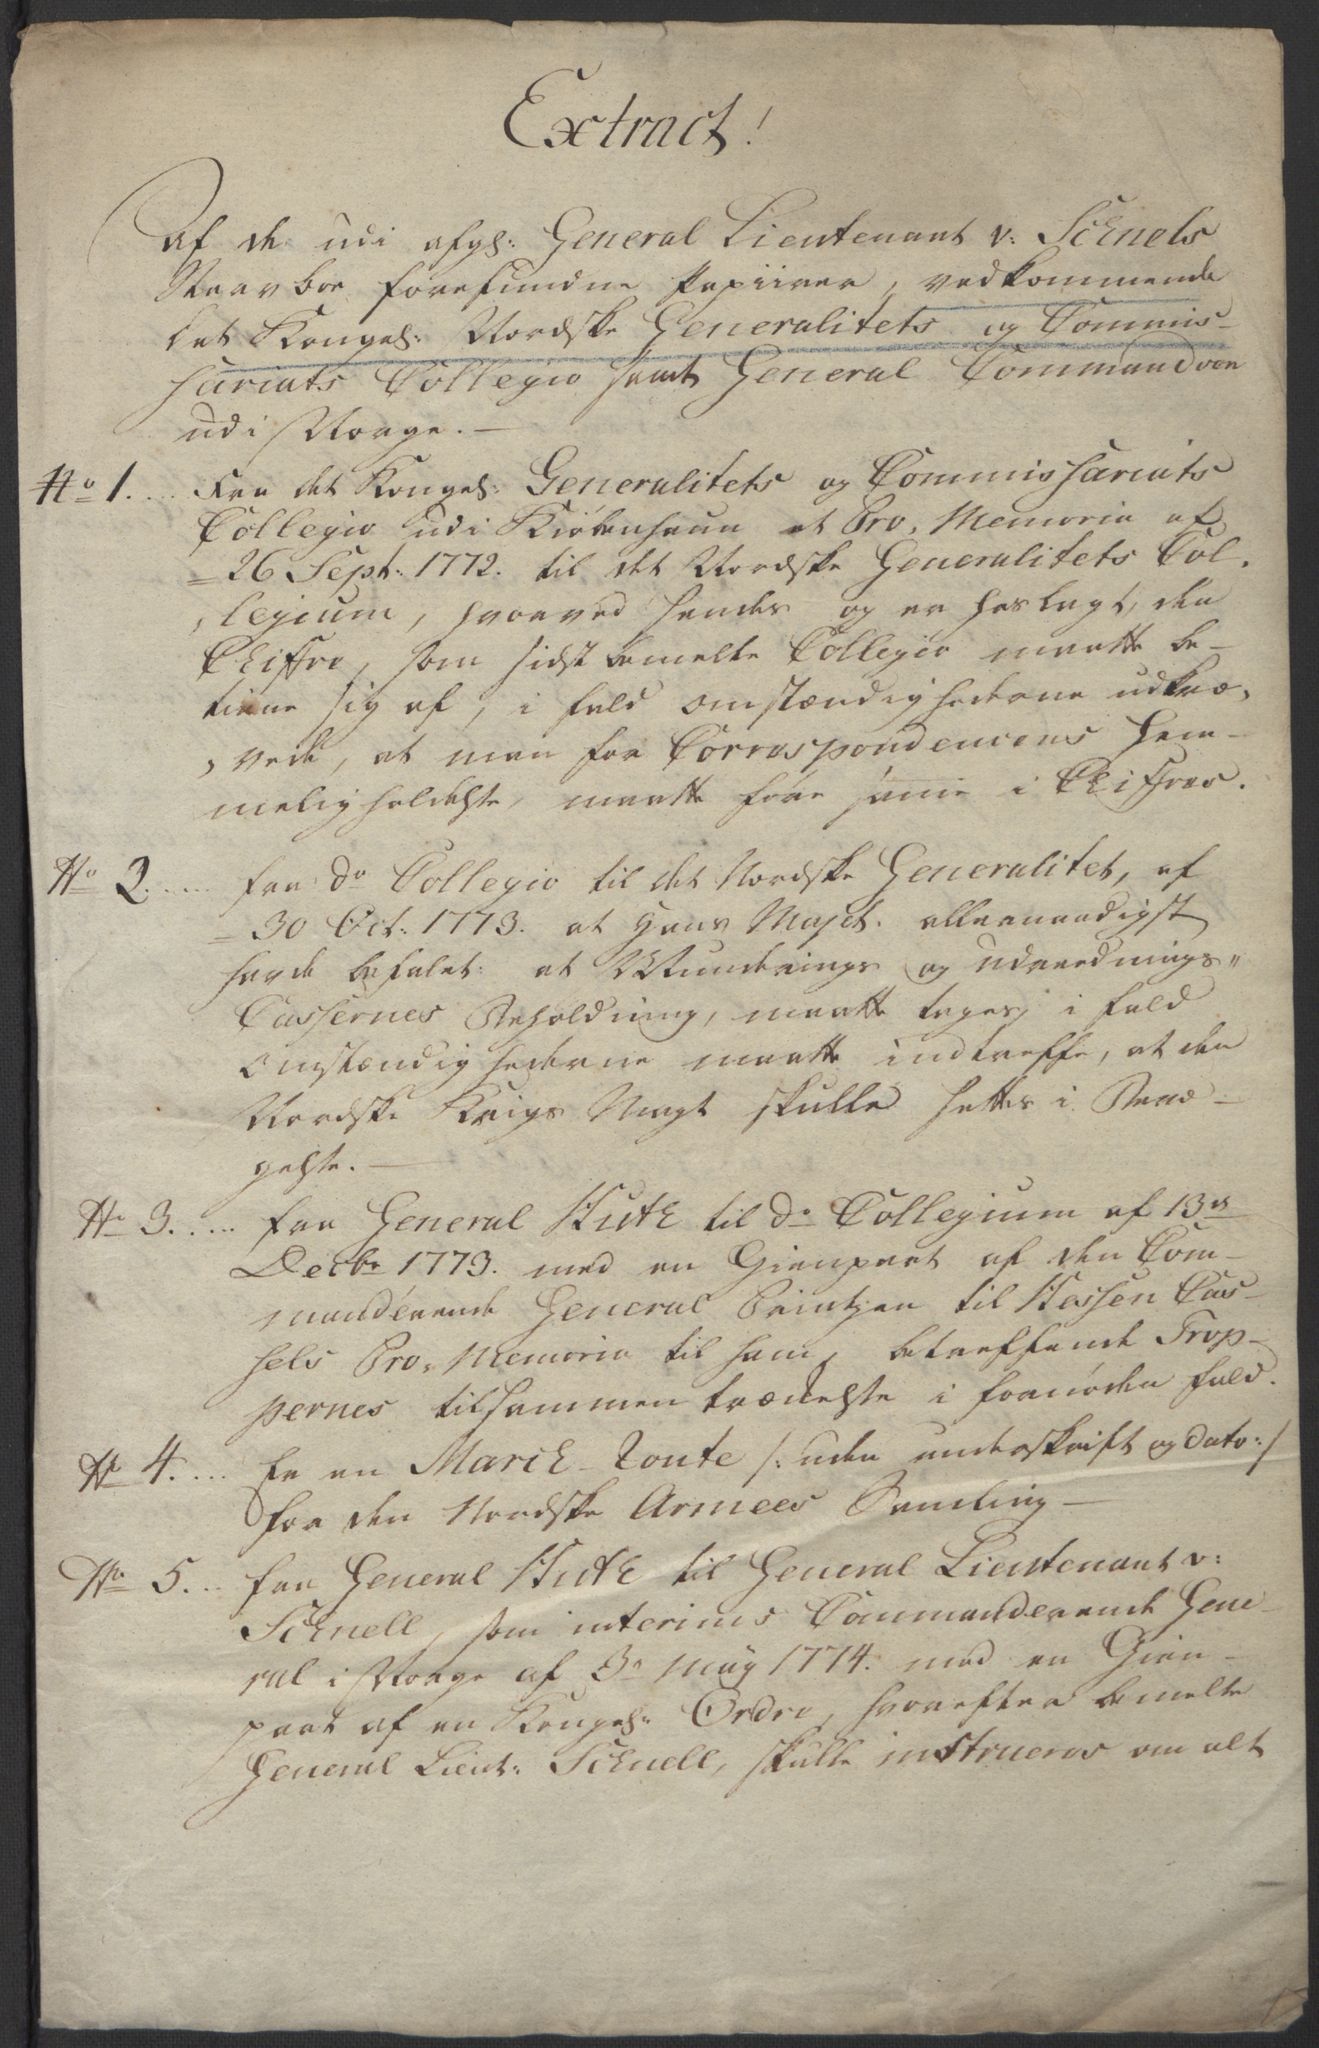 Extract!
Af de udi afg: General Lieutenant v: Schnels
Stervboe forefundne Papiirer, vedkommende
det Kongel: Nordske Generalitets og Commis-
sariats Collegio samt General Commandoen
udi Norge. —
No 1. ... Fra det Kongel: Generalitets og Commissariats
Collegio udi Kiøbenhaun et Pro, Memoria af
= 26 Sept: 1772. til det Nordske Generalitets Col,
, legium, hvorved sendes og er heslagt, den
Chiffre, som sidst bemelte Collegio maatte be-
tiene sig af, i fald omstændighederne udkræ,
, vede, at man for Correspondencens Hem-
meligholdelse, maatte føre samme i Chiffres.
No 2. .... fra do Collegio til det Nordske Generalitet, af
= 30 Oct: 1773. at Hans Majet. allernaadigst
havde befalet: at Munderings og Udrednings"
Cassernes Beholdning, maatte tages, i fald
Omstændighederne maatte indtreffe, at den
Nordske Krigs Magt skulle settes i Bevæ-
gelse. —
No 3. .... fra General Huth til do Collegium af 13de
Decbr 1773. med en Gienpart af den Com-
manderende General Printzen til Hessen Cas-
sels Pro, Memoria til ham, betreffende Trop-
pernes tilsammentrædelse i fornøden fald.
No 4. ... Er en March-Route /: uden underskrift og dato :/
for den Nordske Armees Samling —
No 5. .. fra General Huth til General Lieutenant v:
Schnell, som interims Commanderende Gene-
ral i Norge af 3e May 1774. med en Gien-
part af en Kongel: Ordre, hvorefter bemelte
General Lieut: Schnell, skulle instrueres om alt